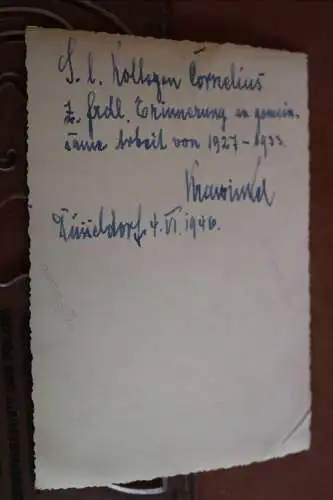 S. l. Kollegen Cornelius
z. frdl. Erinnerung an gemein-
same Arbeit von 1927-1933.
Krawinkel
Düsseldorf. 4. VI. 1946.